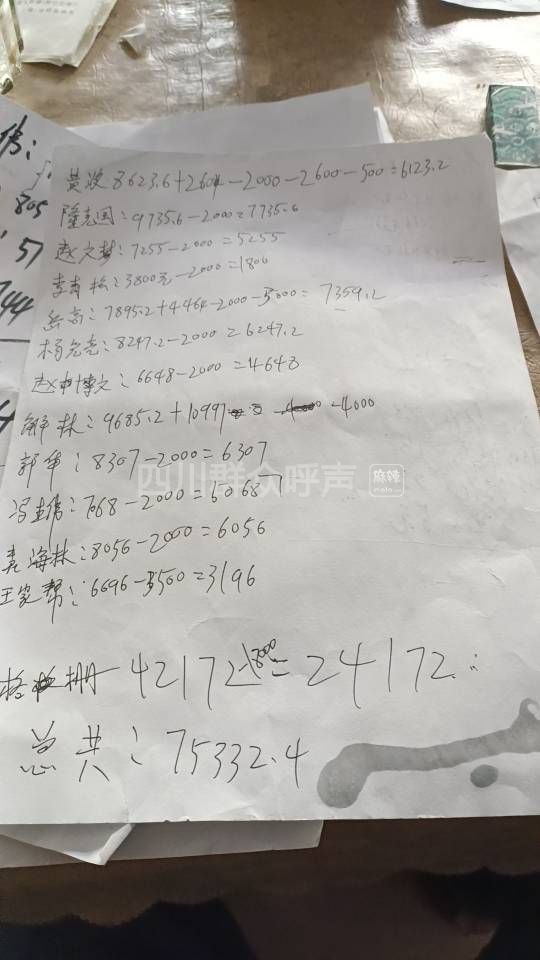 黄波8623.6+2604-2000-2600-500=6123.2
隆克国:9735.6-2000=7735.6
赵文梦:7255-2000=5255
李青松:3800元-2000=1800
岳高:7895.2+4464-2000-3000=7359.2
杨允亮:8247.2-2000=6247.2
赵中博文:6648-2000=4648
解林:9685.2+10997 -4000
郭华:8307-2000=6307
冯生伟:7068-2000=5068
袁海林:8056-2000=6056
王家帮:6696-3500=3196
格栅 42172-18000=24172
总共:75332.4
伟:
805
57
744
四川群众呼声
麻辣